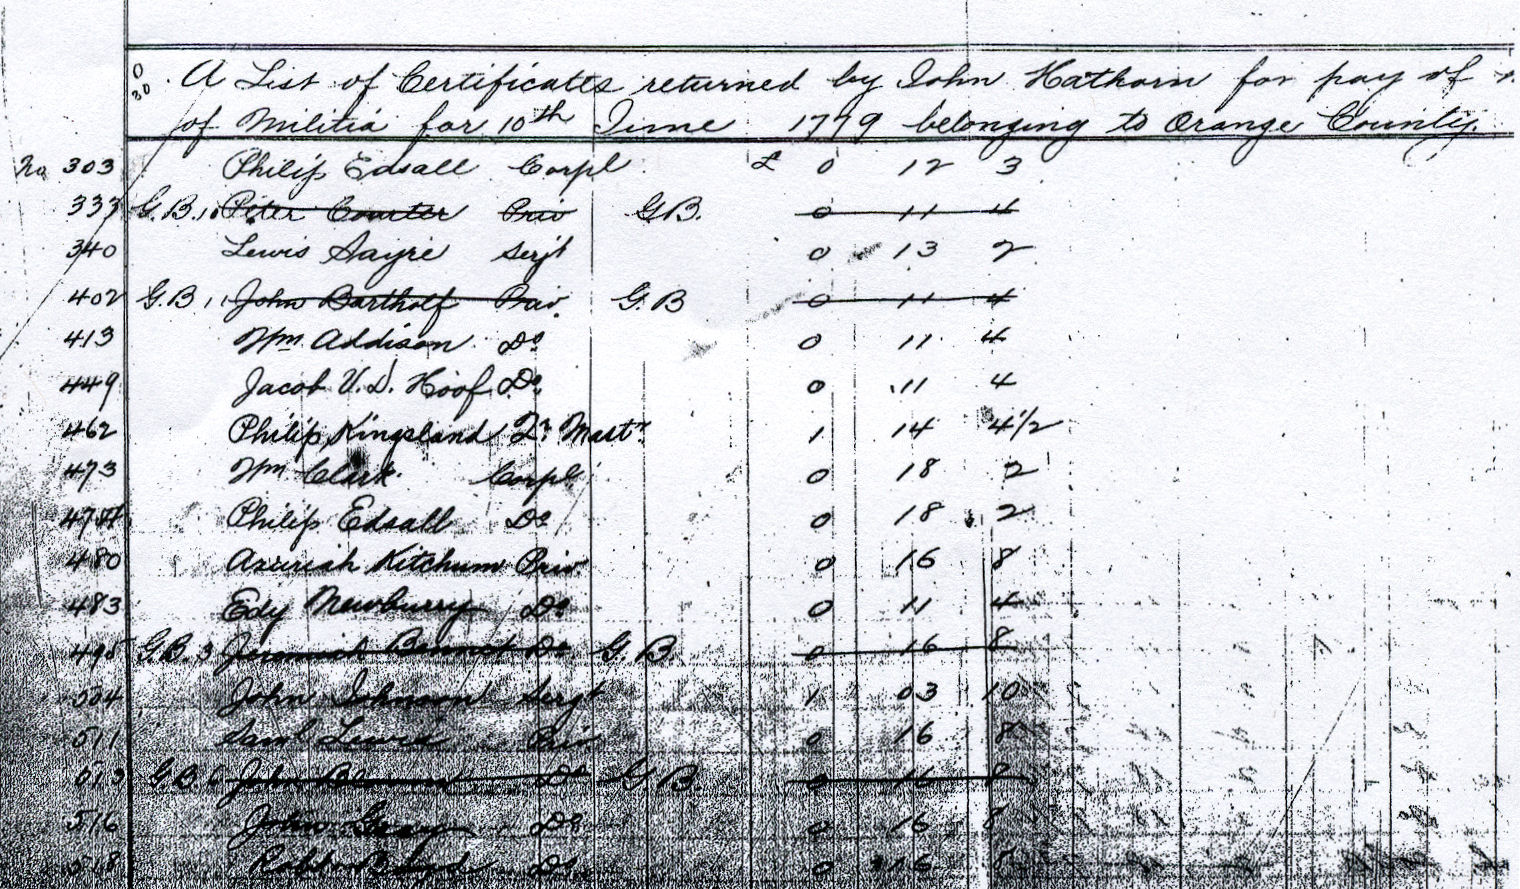 A List of Certificates returned by John Hathorn for pay of
of Militia for 10th June 1779 belonging to Orange County.
No 303 Philip Edsall Corpl £ 0 12 3
333 G.B. Peter Courter Priv G.B. 0 11 4
340 Lewis Sayre Serjt 0 13 2
402 G.B. 11 John Bartholf Priv. G.B 0 11 4
413 Wm Addison Do 0 11 4
449 Jacob V. D. Hoof Do 0 11 4
462 Philip Kingsland Qr Mastr 1 14 4 1/2
473 Wm Clark Corpl 0 18 2
Philip Edsall Do 0 18 2
480 Azuriah Kitchum Priv. 0 16 8
483 Edy Newburry Do 0 11 4
G.B. 3 Jeremiah Bennet Do G.B 0 16 8
504 John Johnson Sergt 1 03 10
511 Saml Lewis Priv 0 16 8
513 G.B. 6 John Do G.B. 0 16 8
516 John Gray Do 0 16 8
518 Do 0 16 8